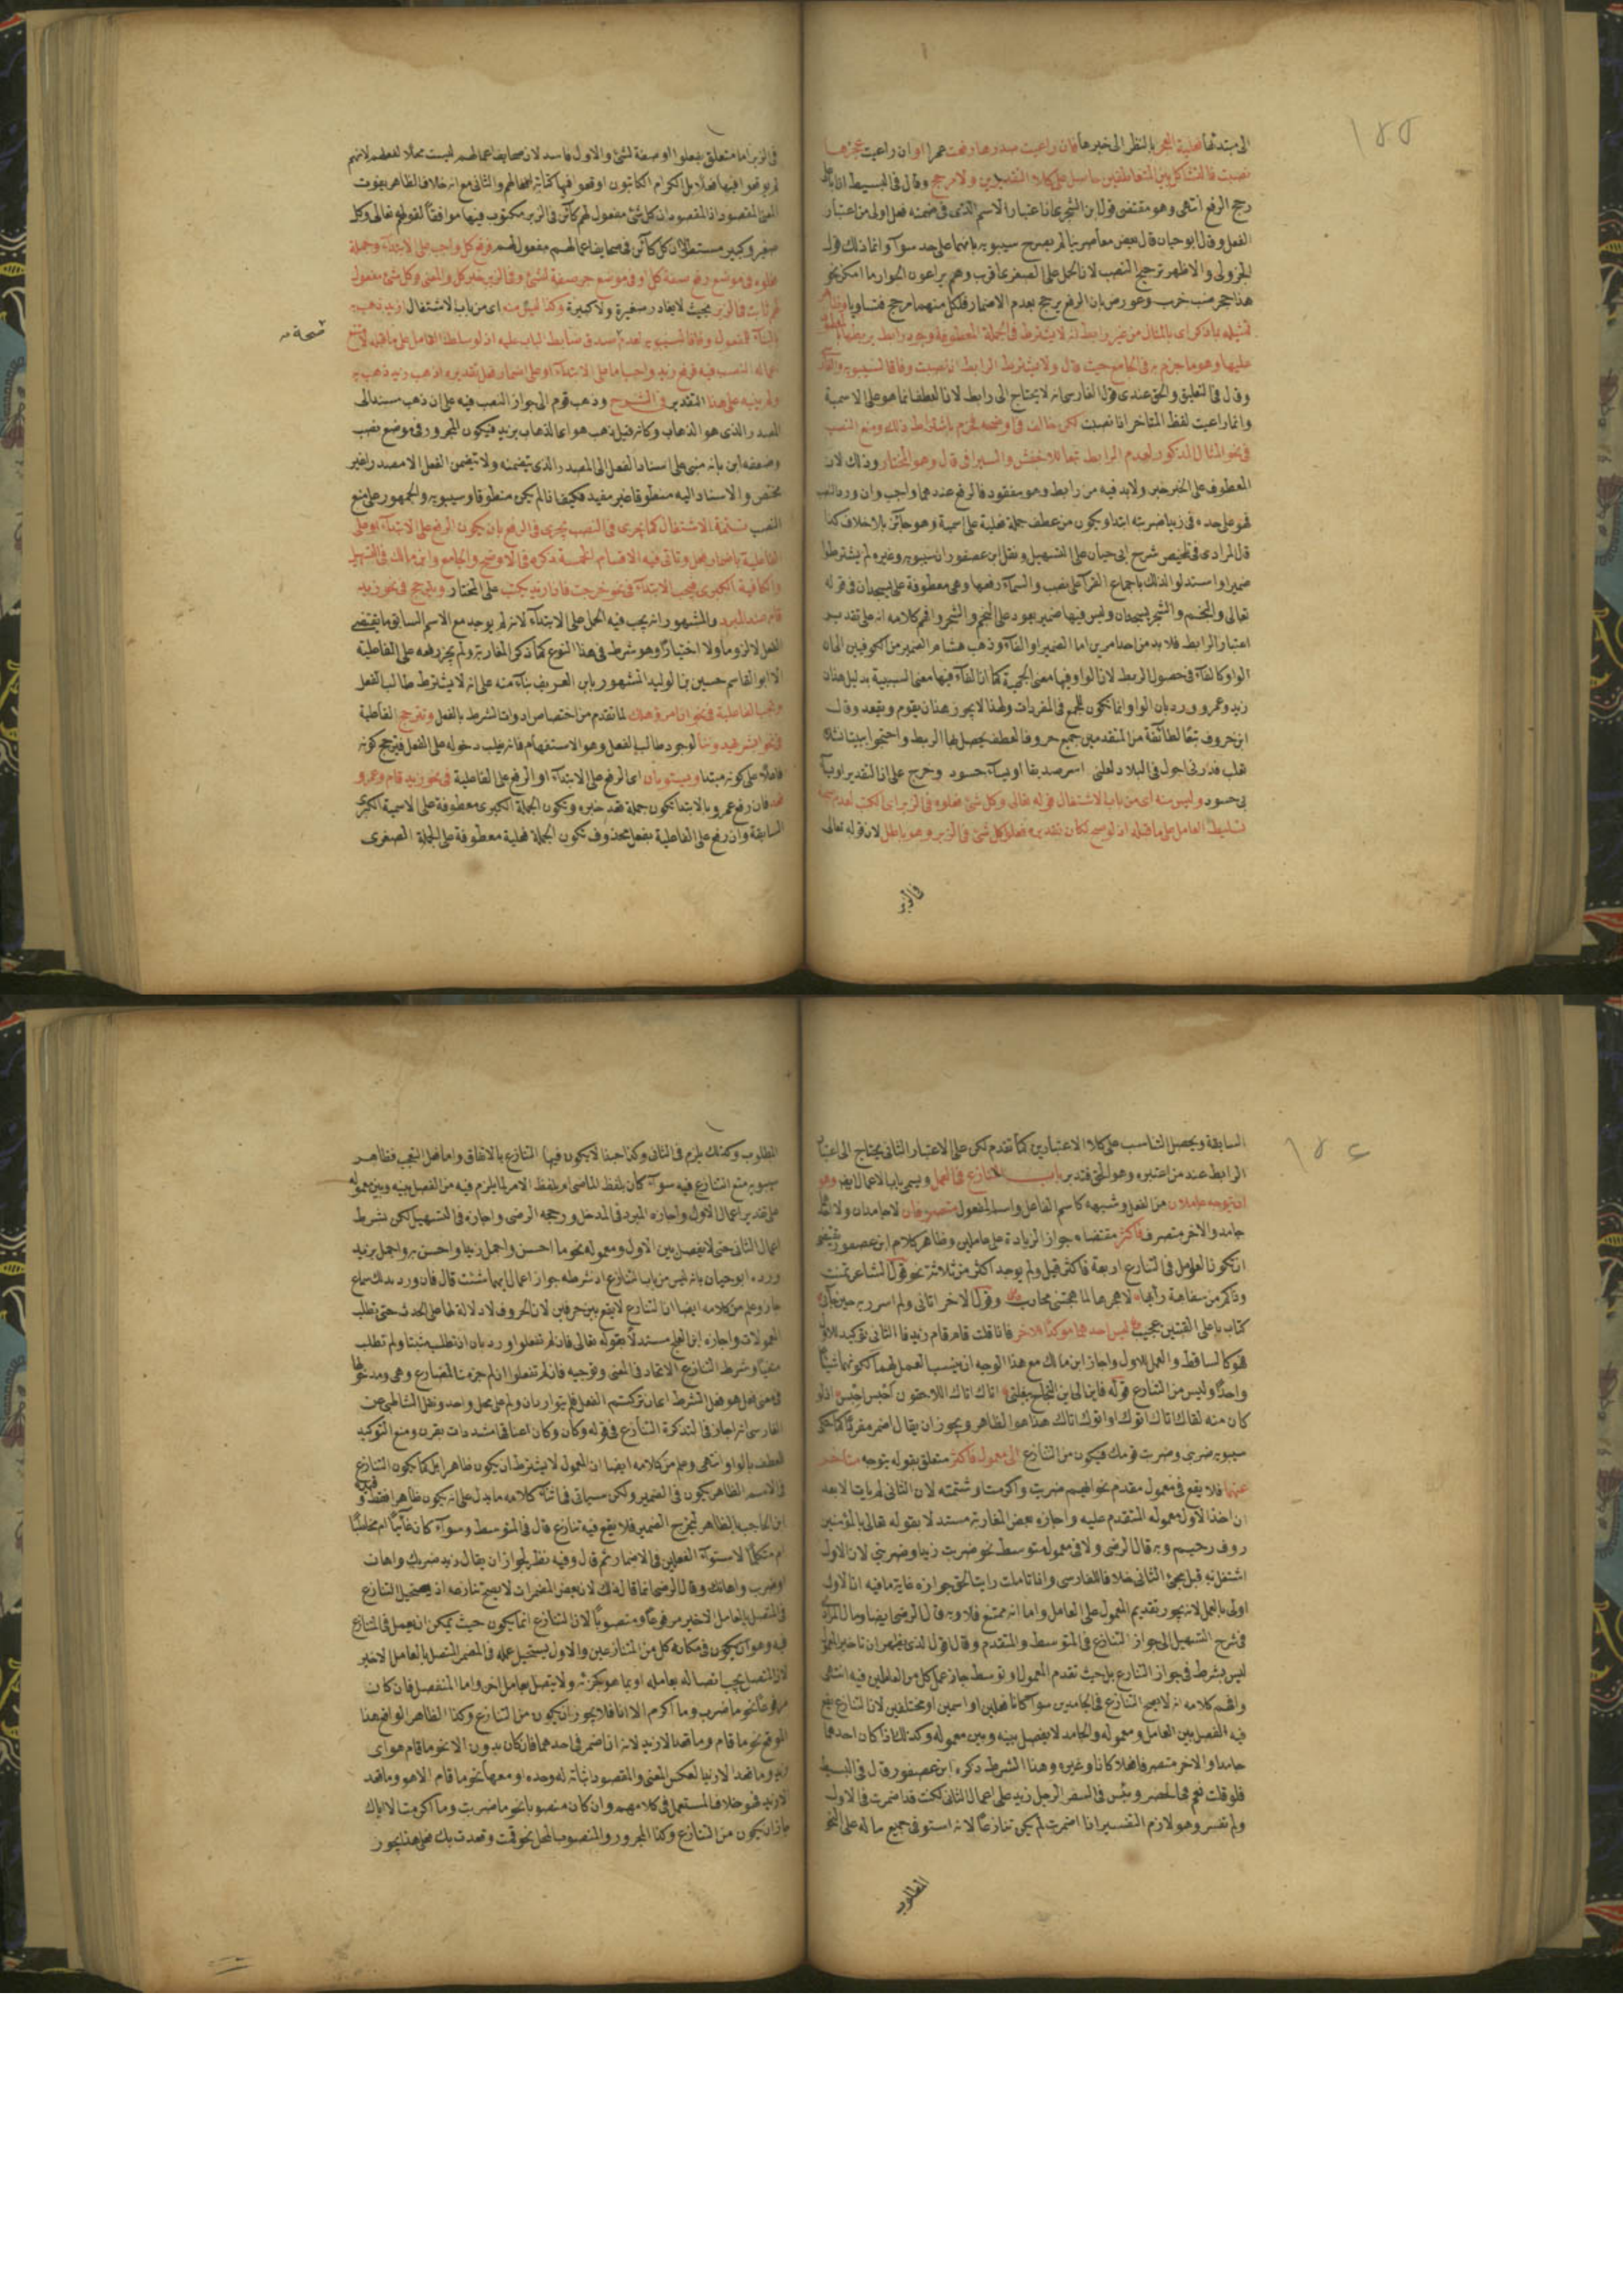 الى مبتدئها فعلية العجز بالنظر الى خبرها فان راعيت صدرها رفعت عمرا او ان راعيت عجزها
نصبت فالتشاكل بين المتعاطفين حاصل على كلا التقديرين ولا مرجح وقال في البسيط انا
رجح الرفع انتهى وهو مقتضى قول ابن الشجري اعتبار الاسم الذى في ضمنه فعل اولى من اعتبار
الفعل وقال ابو حيان قال بعض معاصرينا لم يصرح سيبويه بانهما على حد سوآء وانما ذلك قول
الجزولى والاظهر ترجيح النصب لان الحمل على الصغرى اقرب وهم يراعون الجوار ما امكن نحو
هذا جحر ضب خرب وعورض بان الرفع يرجح بعدم الاضمار فلكل منهما مرجح فتساويا
تمثيله بما ذكر اى بالمثال من غير رابط انه لا يشترط في الجملة المعطوفة وجود رابط يربطها
عليها وهو ما جزم به في الجامع حيث قال ولا يشترط الرابط اذا نصبت وفاقا لسيبويه
وقال في التعليق والحق عندى قول الفارسى انه لا يحتاج الى رابط لان العطف انما هو على الاسمية
وانما راعيت لفظ المتاخر اذا نصبت لكن خالف في اوضحه فجزم باشتراط ذلك ومنع النصب
في نحو المثال المذكور لعدم الرابط تبعا للاخفش والسيرافى قال وهو المختار وذلك لان
المعطوف على الخبر خبر ولا بد فيه من رابط وهو مفقود فالرفع عندهما واجب وان ورد النصب
فهو على حده في زيدا ضربته ابتدا ويكون من عطف جملة فعلية على اسمية وهو جائز بلا خلاف كذا
قال المرادى في تلخيص شرح ابى حيان على التسهيل ونقل ابن عصفور ان سيبويه وغيره لم يشترطوا
ضميرا واستدلوا لذلك باجماع القرآء على نصب والسمآء رفعها وهى معطوفة على يسجدان في قوله
تعالى والنجم والشجر يسجدان وليس فيها ضمير يعود على النجم والشجر وافهم كلامه انه على تقدير
اعتبار الرابط فلا بد من احد امرين اما الضمير او الفآء وذهب هشام الضرير من الكوفيين الى ان
الواو كالفآء في حصول الربط لان الواو فيها معنى الجمعية كما ان الفآء فيها معنى السببية بدليل هذان
زيد وعمرو ورد بان الواو انما تكون للجمع في المفردات ولهذا لا يجوز هذان يقوم ويقعد وقال
ابن خروف تبعا لطائفة من المتقدمين جميع حروف العطف يحصل بها الربط واحتجوا
بى حسود وليس منه اى من باب الاشتغال قوله تعالى وكل شئ فعلوه في الزبر
تسليط العامل على ما قبله اذ لو صح لكان تقديره فعلوا كل شئ في الزبر وهو باطل لان قوله تعالى
في الزبر
في الزبر اما متعلق بفعلوا او صفة لشئ والاول فاسد لان صحايف اعمالهم ليست محلا لفعلهم لانهم
لم يوقعوا فيها فعلا بل الكرام الكاتبون اوقعوا فيها كتابة افعالهم والثانى مع انه خلاف الظاهر يفوت
المعنى المقصود اذ المقصود ان كل شئ مفعول لهم كآئن في الزبر مكتوب فيها موافقا لقوله تعالى وكل
صغير وكبير مستطر لان كل كآئن في صحايف اعمالهم مفعول لهم فرفع كل واجب على الابتدآء وجملة
فعلوه في موضع رفع صفة كل او في موضع جر صفة لشئ وفي الزبر خبر كل والمعنى وكل شئ مفعول
لهم ثابت في الزبر بحيث لا يغادر صغيرة ولا كبيرة وكذا ليس منه اى من باب الاشتغال ازيد ذهب به
نسخة
بالبنآء للمفعول وفاقا لسيبويه لعدم صدق ضابط الباب عليه اذ لو سلط العامل على ما قبله
عماله النصب فيه فرفع زيد واجب اما على الابتدآء او على اضمار فعل تقديره اذهب زيد ذهب به
ولم ينبه على هذا التقدير في الشرح وذهب قوم الى جواز النصب فيه على ان ذهب مسند الى
المصدر الذى هو الذهاب وكانه قيل ذهب هو اى الذهاب بزيد فيكون المجرور في موضع نصب
وضعفه ابن بانه مبنى على اسناد الفعل الى المصدر الذى يتضمنه ولا يتضمن الفعل الا مصدرا غير
مختص والاسناد اليه منطوقا غير مفيد فكيف اذا لم يكن منطوقا وسيبويه والجمهور على منع
النصب تتمة الاشتغال كما يجرى في النصب يجرى في الرفع بان يكون الرفع على الابتدآء او على
الفاعلية باضمار فعل وتاتى فيه الاقسام الخمسة ذكره في الاوضح والجامع وابن مالك في التسهيل
والكافية الكبرى فيجب الابتدآء في نحو خرجت فاذا زيد يكتب على المختار ويترجح في نحو زيد
قام عند المبرد والمشهور انه يجب فيه الحمل على الابتدآء لانه لم يوجد مع الاسم السابق ما يقتضى
الفعل لا لزوما ولا اختيارا وهو شرط في هذا النوع كما ذكر المغاربة ولم يجز رفعه على الفاعلية
الا ابو القاسم حسين بن الوليد المشهور بابن العريف بنآء منه على انه لا يشترط طالب الفعل
وتجب الفاعلية في نحو ان امرؤ هلك لما تقدم من اختصاص ادوات الشرط بالفعل وتترجح الفاعلية
في نحو ابشر يهدوننا لوجود طالب الفعل وهو الاستفهام فانه يغلب دخوله على الفعل فيترجح كونه
فاعلا على كونه مبتدا ويستويان اى الرفع على الابتدآء او الرفع على الفاعلية في نحو زيد قام وعمرو
قعد فان رفع عمرو بالابتدا تكون جملة قعد خبره وتكون الجملة الكبرى معطوفة على الاسمية الكبرى
السابقة وان رفع على الفاعلية بفعل محذوف تكون الجملة فعلية معطوفة على الجملة الصغرى
السابقة ويحصل التناسب على كلا الاعتبارين كما تقدم لكن على الاعتبار الثانى يحتاج الى اعتبار
الرابط عند من اعتبره وهو الحق فتدبر باب التنازع في العمل ويسمى باب الاعمال ايضا وهو
ان يتوجه عاملان من الفعل وشبهه كاسم الفاعل واسم المفعول متصرفان لا جامدان ولا
جامد والاخر متصرف فاكثر مقتضاه جواز الزيادة على عاملين وظاهر كلام ابن عصفور
ان تكون العوامل في التنازع اربعة فاكثر قيل ولم يوجد اكثر من ثلاثة نحو قول الشاعر تمنت
كتاب باعلى القنتين عجيب ليس احدهما موكدا للاخر فاذا قلت قام قام زيد فالثانى توكيد للاول
فهو كالساقط والعمل للاول واجاز ابن مالك مع هذا الوجه ان ينسب العمل لهما لكونهما شيئا
واحدا وليس من التنازع قوله فاين الى اين النجاة ببغلتى اتاك اتاك اللاحقون احبس احبس اذ لو
كان منه لقال اتاك اتوك او اتوك اتاك هذا هو الظاهر ويجوز ان يقال اضمر مفردا كما حكى
سيبويه ضربنى وضربت قومك فيكون من التنازع الى معمول فاكثر متعلق بقوله يتوجه متاخر
عنهما فلا يقع في معمول مقدم نحو ايهم ضربت واكرمت او شتمته لان الثانى لم يات الا بعد
ان اخذ الاول معموله المتقدم عليه واجازه بعض المغاربة مستدلا بقوله تعالى بالمؤمنين
روف رحيم وبه قال الرضى ولا في معمول متوسط نحو ضربت زيدا وضربنى لان الاول
اشتغل به قبل مجئ الثانى خلافا للفارسى واذا تاملت رايت الحق جوازه غاية ما فيه ان الاول
اولى بالعمل لانه يجوز تقديم المعمول على العامل واما انه ممتنع فلا وبه قال الرضى ايضا ومال المرادى
في شرح التسهيل الى جواز التنازع في المتوسط والمتقدم وقال اقول الذى يظهر ان تاخير المعمول
ليس بشرط في جواز التنازع بل حيث تقدم المعمول او توسط جاز عمل كل من العاملين فيه انتهى
وافهم كلامه انه لا يصح التنازع في الجامدين سوآء كانا فعلين او اسمين او مختلفين لان التنازع يقع
فيه الفصل بين العامل ومعموله والجامد لا يفصل بينه وبين معموله وكذلك اذا كان احدهما
جامدا والاخر متصرفا فعلا كان او غيره وهذا الشرط ذكره ابن عصفور قال في البسيط
فلو قلت نعم في الحضر وبئس في السفر الرجل زيد على اعمال الثانى لكنت قد اضمرت في الاول
ولم تفسر وهو لازم التفسير اذا اضمرت لم يكن تنازعا لانه استوفى جميع ما له على النحو
المطلوب
المطلوب وكذلك يلزم في الثانى وكذا حبذا لا يكون فيها التنازع بالاتفاق واما فعل التعجب فظاهر
سيبويه منع التنازع فيه سوآء كان بلفظ الماضى ام بلفظ الامر لما يلزم فيه من الفصل بينه وبين معموله
على تقدير اعمال الاول واجازه المبرد في المدخل ورجحه الرضى واجازه في التسهيل لكن بشرط
اعمال الثانى حتى لا يفصل بين الاول ومعموله نحو ما احسن واجمل زيدا واحسن به واجمل بزيد
ورده ابو حيان بانه ليس من باب التنازع اذ شرطه جواز اعمال ايهما شئت قال فان ورد بذلك سماع
جاز وعلم من كلامه ايضا ان التنازع لا يقع بين حرفين لان الحروف لا دلالة لها على الحدث حتى تطلب
المعمولات واجازه ابن العلج مستدلا بقوله تعالى فان لم تفعلوا ورد بان ان تطلب مثبتا ولم تطلب
منفيا وشرط التنازع الاتحاد في المعنى
الفارسى انه اجاز في التذكرة التنازع في قوله وكان وكان اعناقا مشددات بقرن ومنع التوكيد
العطف بالواو انتهى وعلم من كلامه ايضا ان المعمول لا يشترط ان يكون ظاهرا بل كما يكون التنازع
في الاسم الظاهر يكون في الضمير ولكن سياتى في اثنآء كلامه ما يدل على انه يكون ظاهرا فقط
ابن الحاجب بالظاهر ليخرج الضمير فلا يقع فيه تنازع قال في المتوسط وسوآء كان غآئبا ام مخاطبا
ام متكلما لاستوآء الفعلين في الاضمار ثم قال وفيه نظر لجواز ان يقال زيد ضربك واهان
او ضرب واهانك وقال الرضى انما قال ذلك لان بعض المضمرات لا يصح تنازعه اذ يستحيل التنازع
في المتصل بالعامل الاخير مرفوعا ومنصوبا لان التنازع انما يكون حيث يمكن ان يعمل في المتنازع
فيه وهو ان يكون في مكانه كل من المتنازعين والاول يستحيل عمله في المضمر المتصل بالعامل الاخير
لان المتصل يجب اتصاله بعامله او بما هو كجزئه ولا يتصل بعامل اخر واما المنفصل فان كان
مرفوعا نحو ما ضرب وما اكرم الا انا فلا يجوز ان يكون من التنازع وكذا الظاهر الواقع هذا
الموقع نحو ما قام وما قعد الا زيد لانه اذا اضمر في احدهما فان كان بدون الا نحو ما قام هو اى
زيد وما قعد الا زيد انعكس المعنى والمقصود اثباته له وحده او معها نحو ما قام الا هو وما قعد
الا زيد فهو خلاف المستعمل في كلامهم وان كان منصوبا نحو ما ضربت وما اكرمت الا اياك
جاز ان يكون من التنازع وكذا المجرور والمنصوب المحل نحو قمت وقعدت بك فعلى هذا يجوز